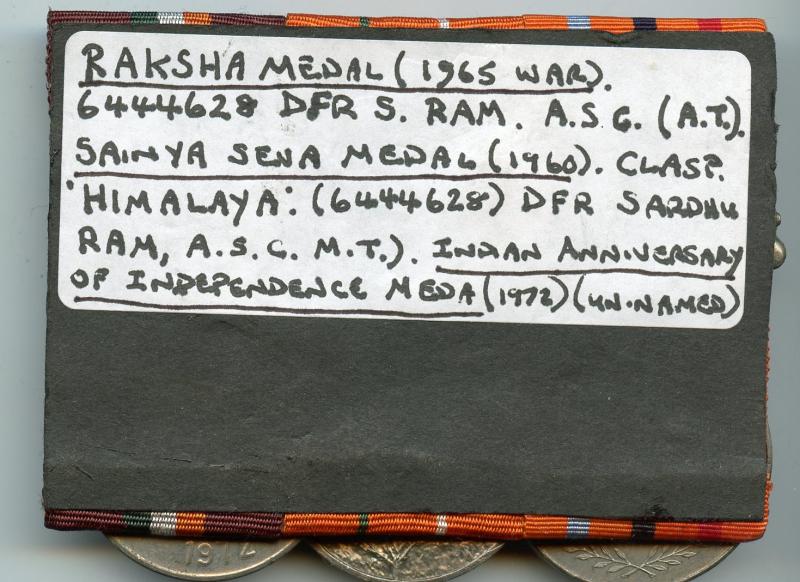 RAKSHA MEDAL (1965 WAR).
6444628 DFR S. RAM. A.S.C. (A.T.).
SAINYA SENA MEDAL (1960). CLASP.
'HIMALAYA'. (6444628) DFR SARDHU
RAM, A.S.C. M.T.). INDIAN ANNIVERSARY
OF INDEPENDENCE MEDA (1972) (UN.NAMED)
1972